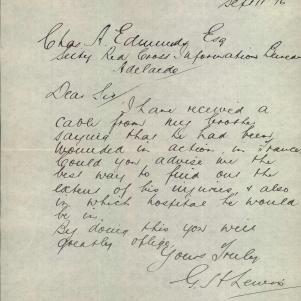 Sept 11 16
Chas A. Edmunds Esq
Secty Red Cross Information Bureau
Adelaide
Dear Sir
I have received a
cable from my brother
saying that he had been
wounded in action in France
Could you advise me the
best way to find out the
extent of his injuries & also
in which hospital he would
be in.
By doing this you will
greatly oblige
Yours Truly
G. H Lewis